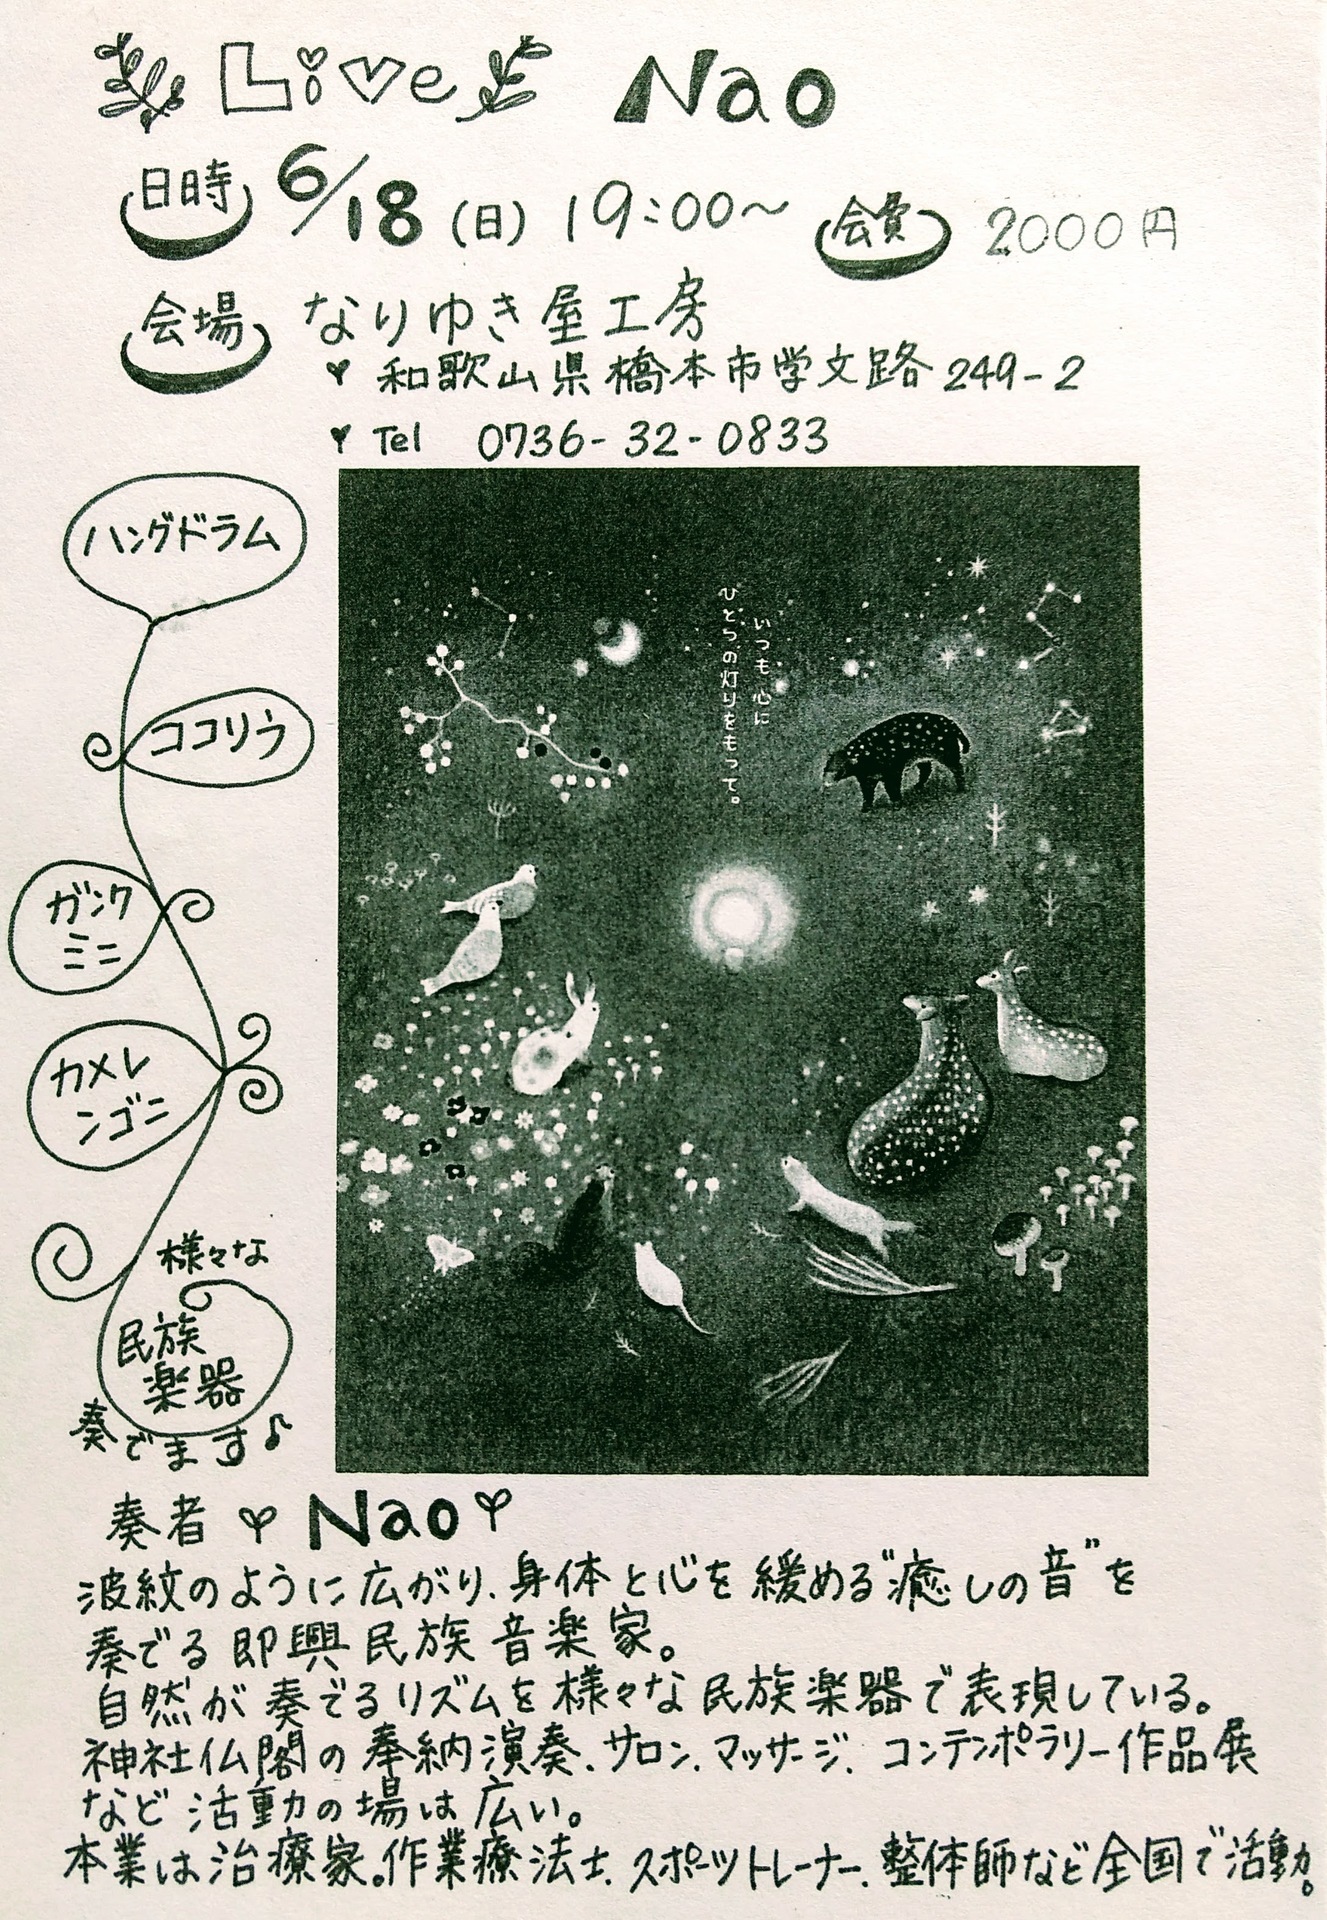 Live Nao
日時 6/18(日) 19:00〜 会費 2000円
会場 なりゆき屋工房
和歌山県橋本市学文路249-2
Tel 0736-32-0833
ハングドラム
ココリウ
ガンク
ミニ
カメレ
ンゴニ
様々な
民族
楽器
奏でます♪
いつも心に
ひとつの灯りをもって。
奏者 Nao
波紋のように広がり、身体と心を緩める"癒しの音"を
奏でる即興民族音楽家。
自然が奏でるリズムを様々な民族楽器で表現している。
神社仏閣の奉納演奏、サロン、マッサージ、コンテンポラリー作品展
など活動の場は広い。
本業は治療家。作業療法士、スポーツトレーナー、整体師など全国で活動。